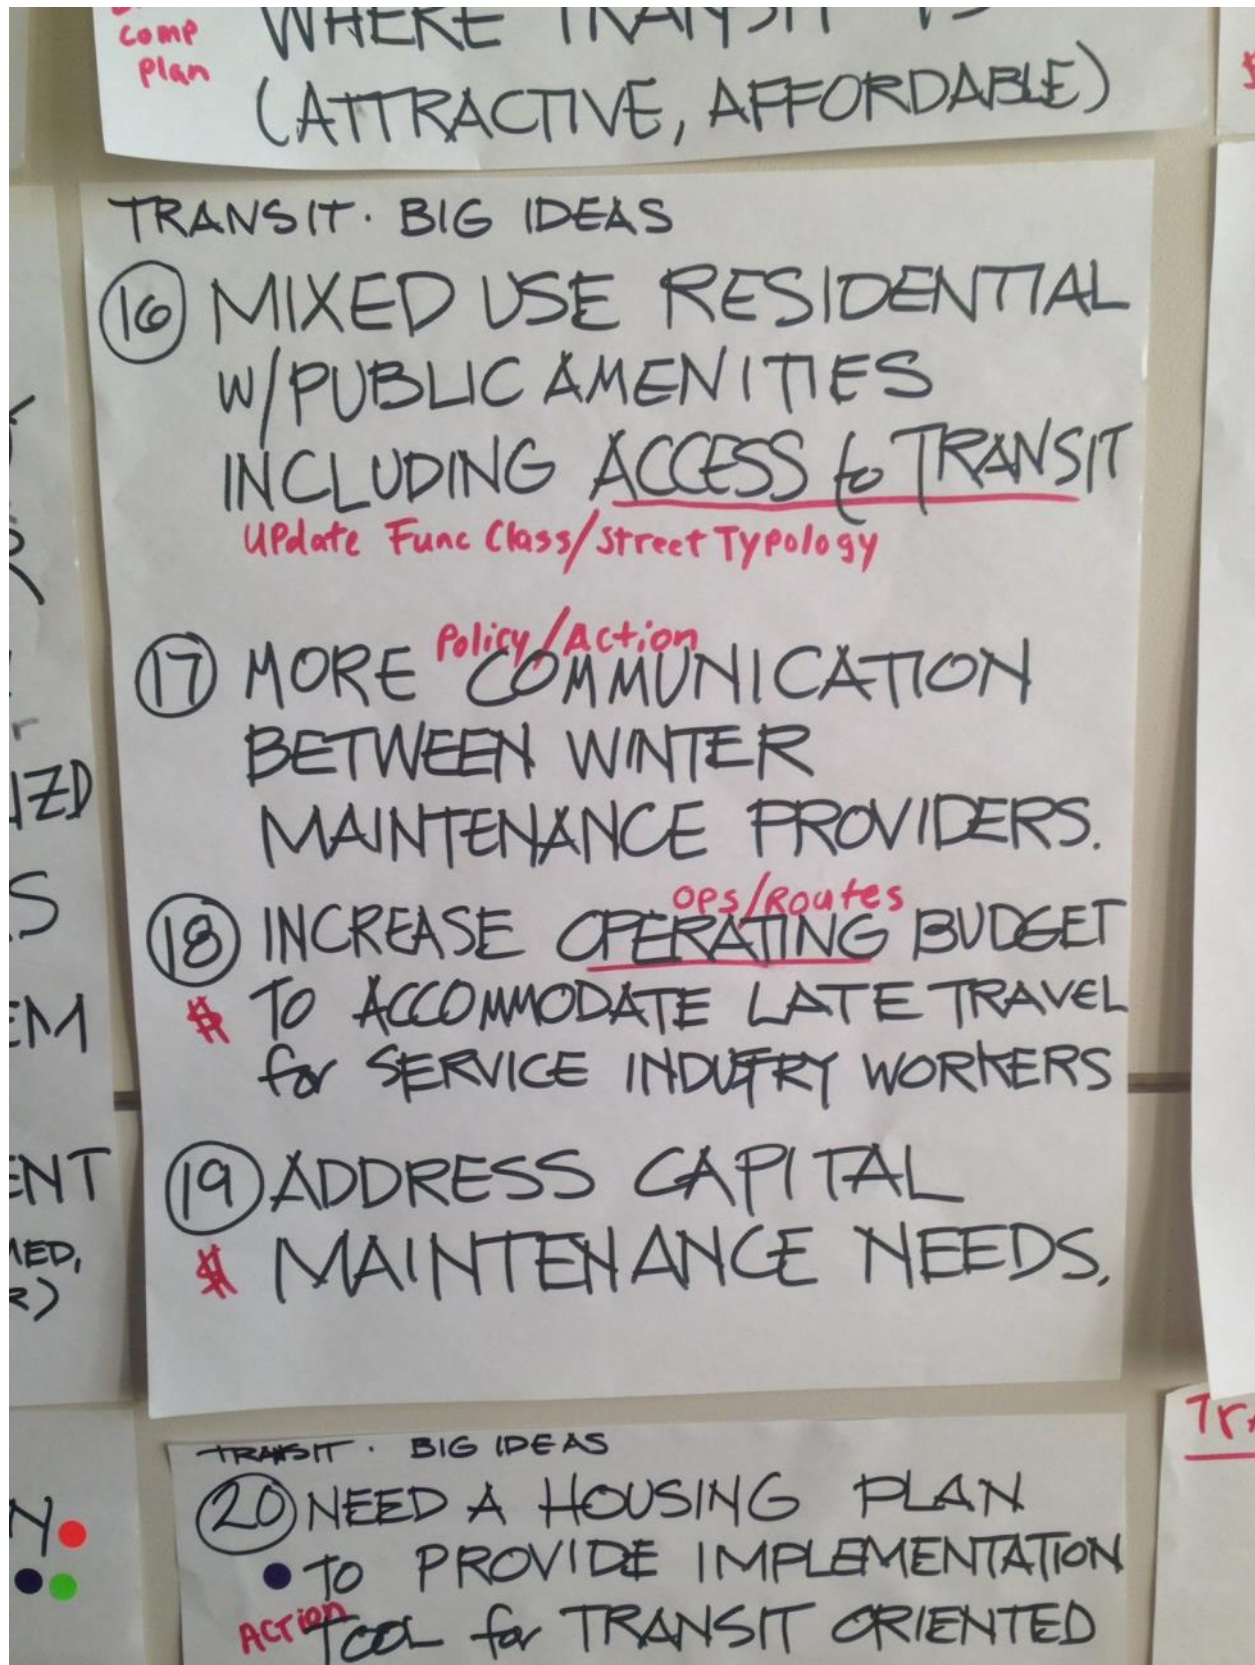 Comp
Plan
WHERE TRANSIT IS
(ATTRACTIVE, AFFORDABLE)
TRANSIT · BIG IDEAS
16 MIXED USE RESIDENTIAL
W/PUBLIC AMENITIES
INCLUDING ACCESS to TRANSIT
Update Func Class/Street Typology
Policy/Action
17 MORE COMMUNICATION
BETWEEN WINTER
MAINTENANCE PROVIDERS.
Ops/Routes
18 INCREASE OPERATING BUDGET
$ TO ACCOMMODATE LATE TRAVEL
for SERVICE INDUSTRY WORKERS
19 ADDRESS CAPITAL
$ MAINTENANCE NEEDS.
TRANSIT · BIG IDEAS
20 NEED A HOUSING PLAN
TO PROVIDE IMPLEMENTATION
ACTION
TOOL for TRANSIT ORIENTED